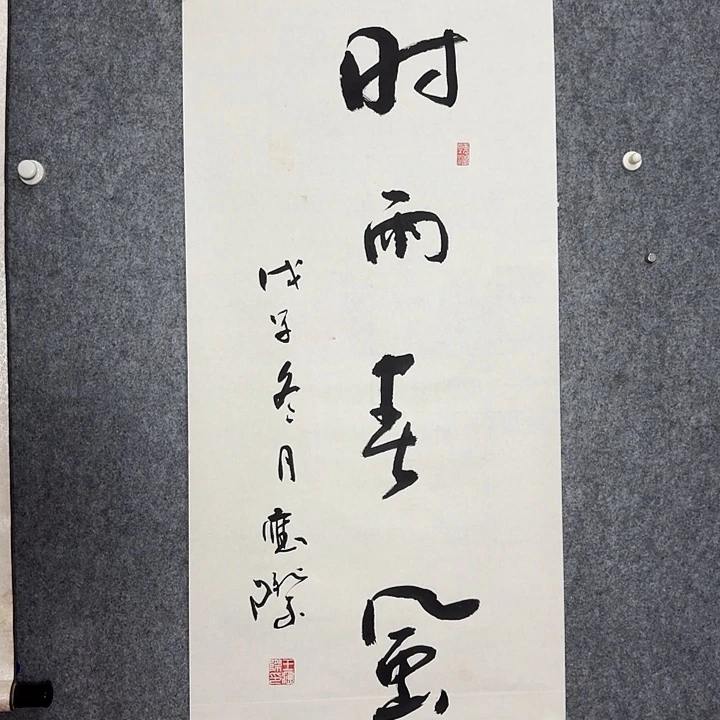 时雨春风
戊子冬月应际